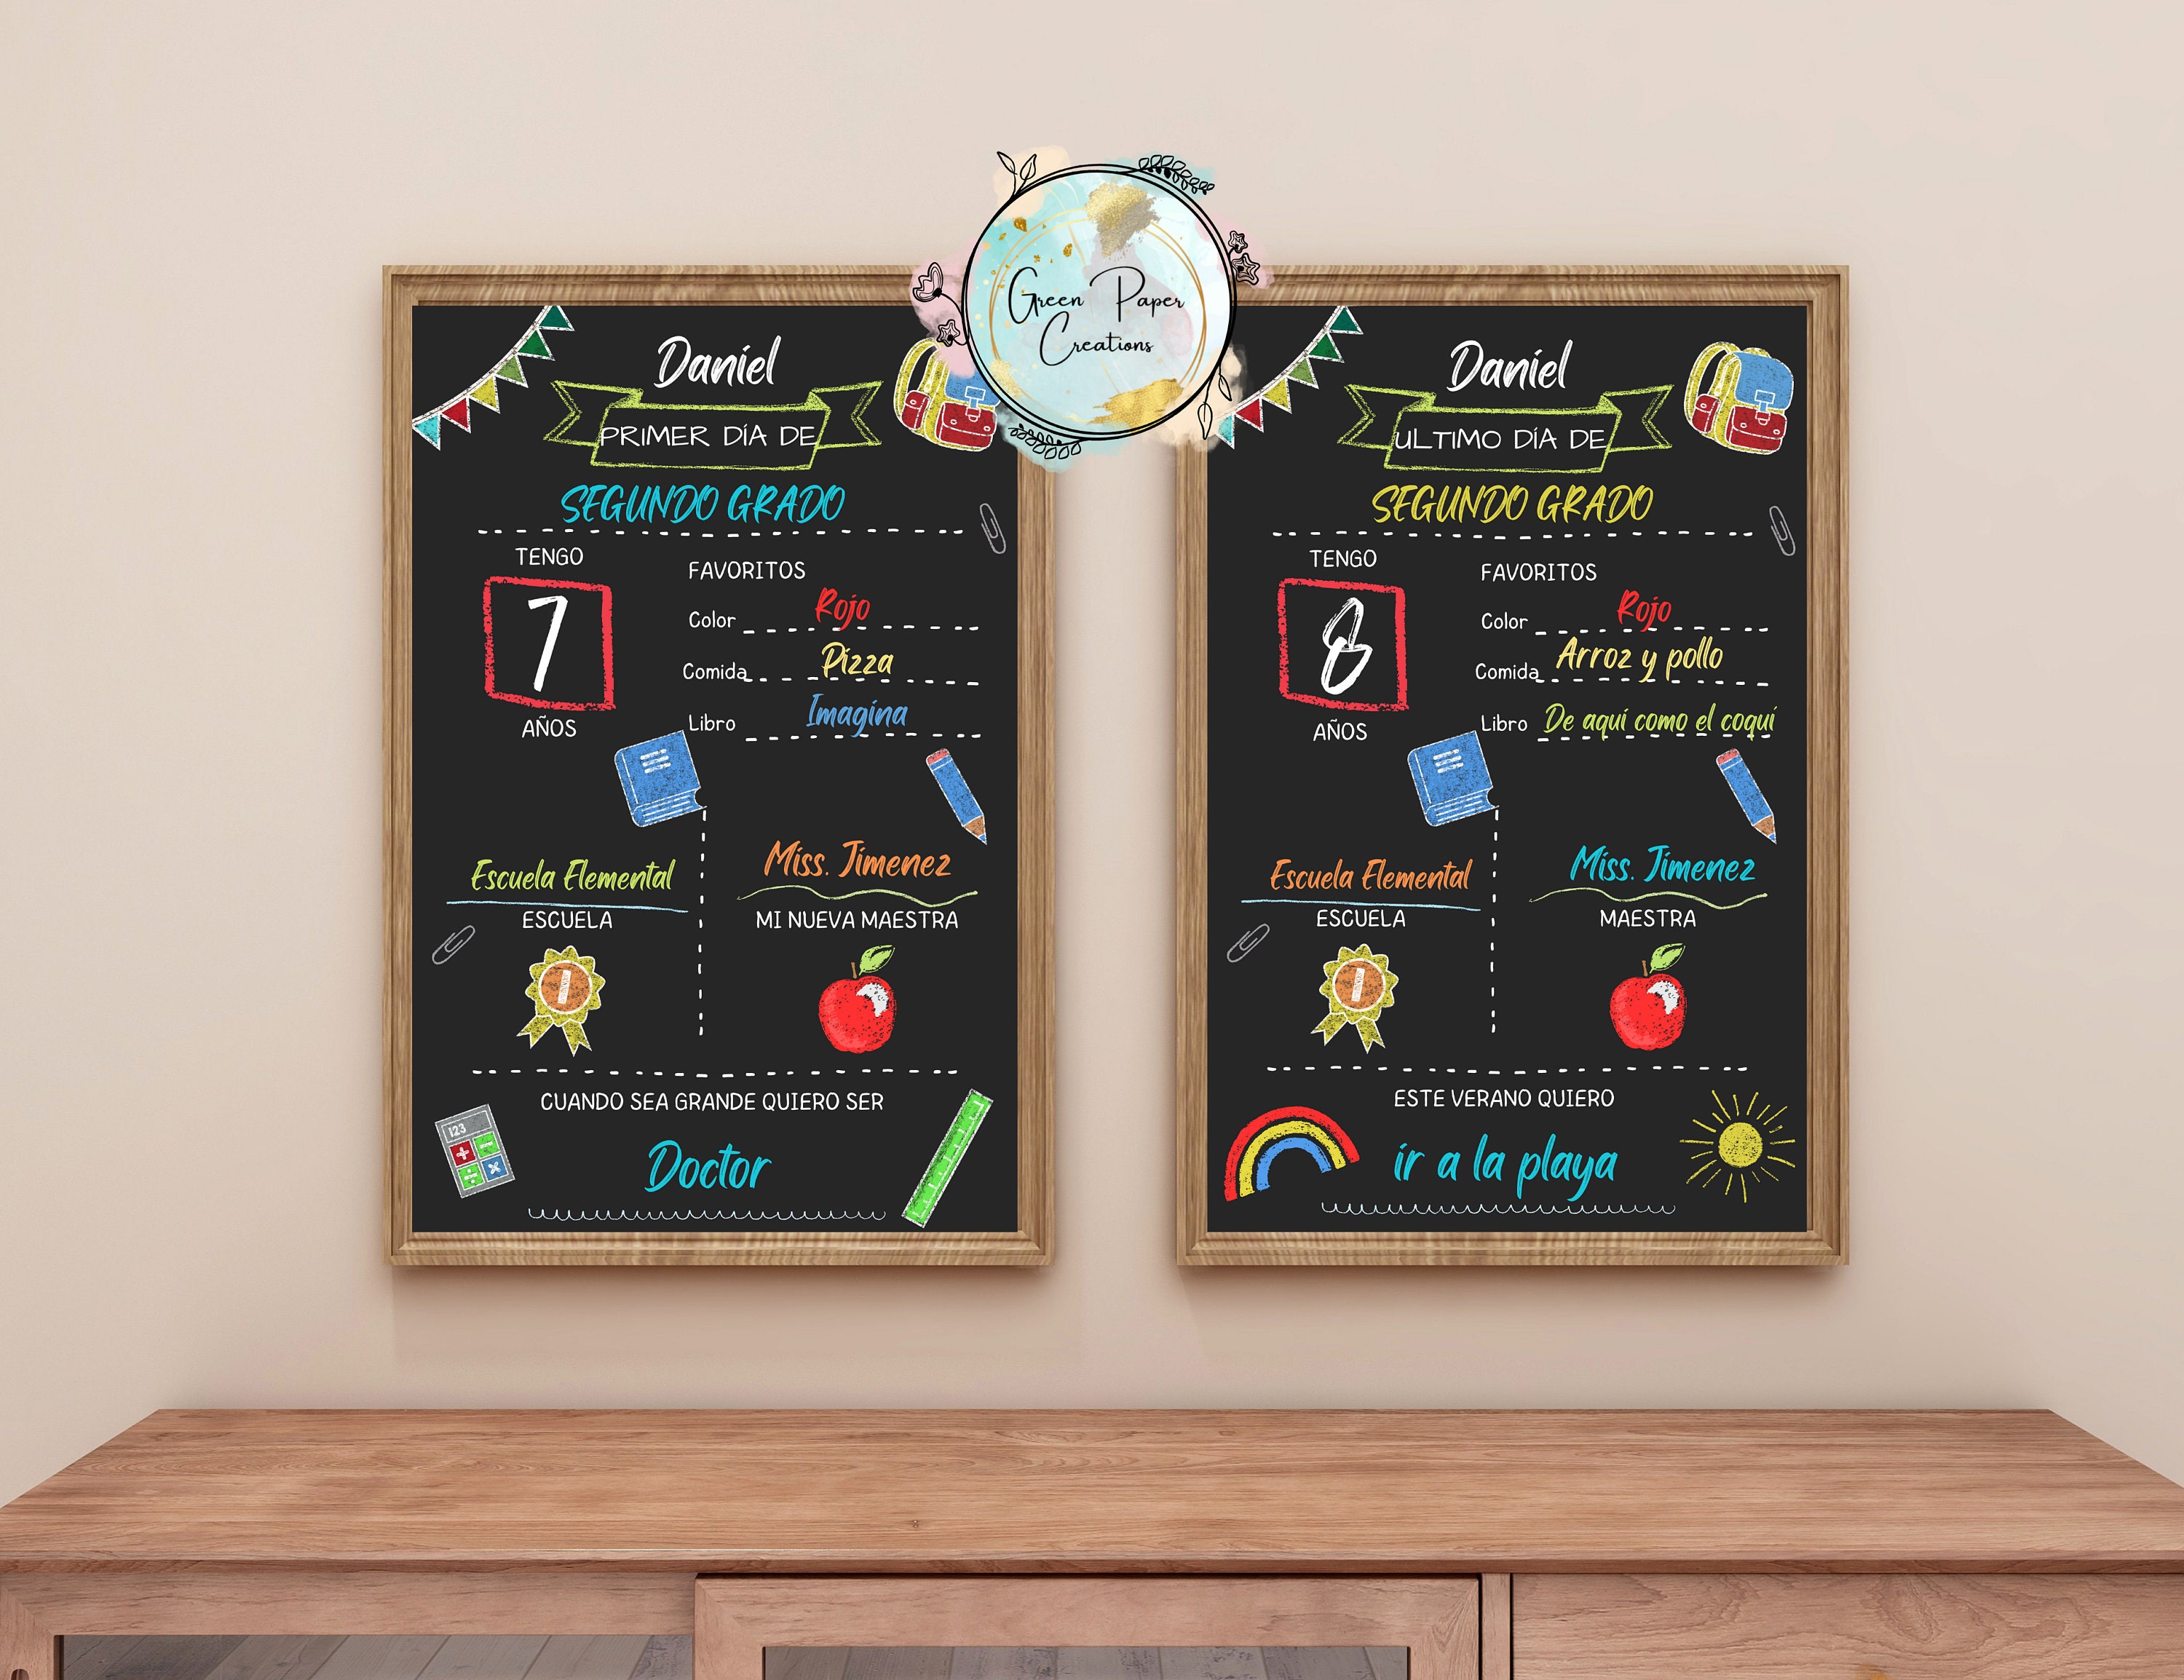 Green Paper
Creations
Daniel
PRIMER DÍA DE
SEGUNDO GRADO
TENGO
7
AÑOS
FAVORITOS
Color Rojo
Comida Pizza
Libro Imagina
Escuela Elemental
ESCUELA
Miss. Jimenez
MI NUEVA MAESTRA
1
CUANDO SEA GRANDE QUIERO SER
123
Doctor
Daniel
ULTIMO DÍA DE
SEGUNDO GRADO
TENGO
8
AÑOS
FAVORITOS
Color Rojo
Comida Arroz y pollo
Libro De aquí como el coquí
Escuela Elemental
ESCUELA
Miss. Jimenez
MAESTRA
1
ESTE VERANO QUIERO
ir a la playa